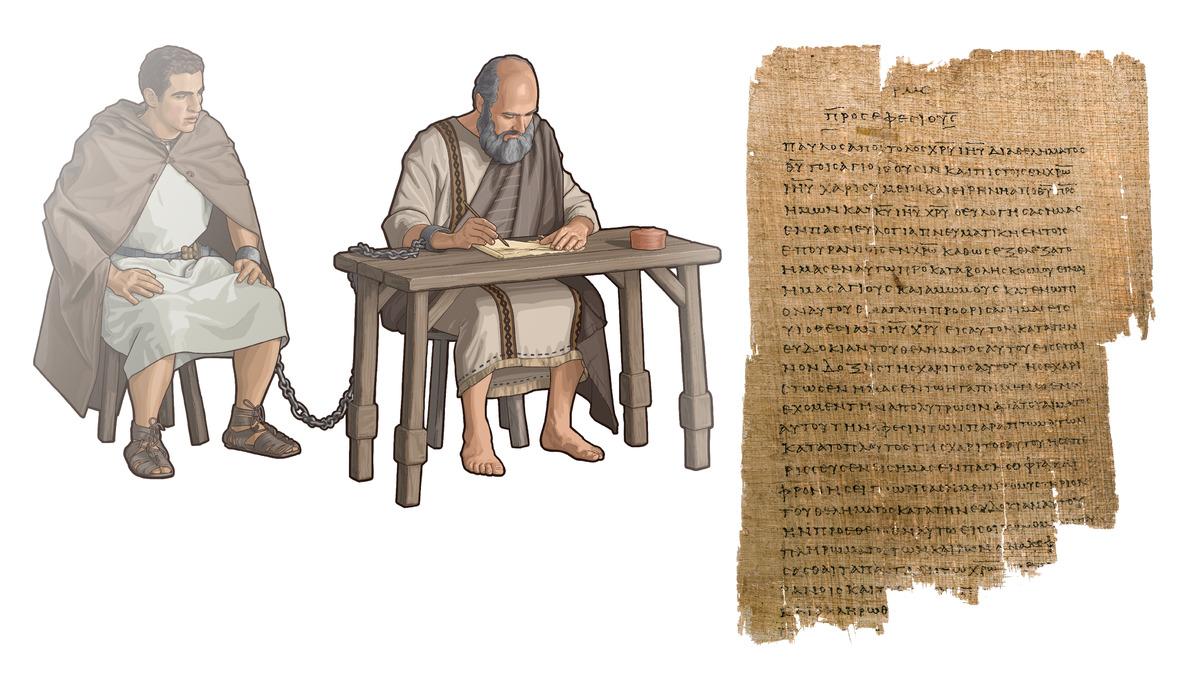 ΡΜϚ
ΠΡΟϹΕΦΕϹΙΟΥϹ
ΠΑΥΛΟϹΑΠΟ ΤΟΛΟϹΧ̅Ρ̅Υ̅ Ι̅Η̅Υ̅ ΔΙΑΘΕΛΗΜΑΤΟϹ
Θ̅Υ̅ ΤΟΙϹΑΓΙΟΙϹΟΥϹΙΝ ΚΑΙΠΙϹΤΟΙϹΕΝΧ̅Ρ̅Ω̅
Ι̅Η̅Υ̅ ΧΑΡΙϹΥΜΕΙΝ ΚΑΙΕΙΡΗΝΗΑΠΟΘ̅Υ̅ Π̅Ρ̅Ϲ̅
ΗΜΩΝ ΚΑΙΚ̅Υ̅ Ι̅Η̅Υ̅ Χ̅Ρ̅Υ̅ ΟΕΥΛΟΓΗϹΑϹΗΜΑϹ
ΕΝΠΑϹΗΕΥΛΟΓΙΑΠΝΕΥΜΑΤΙΚΗΕΝΤΟΙϹ
ΕΠΟΥΡΑΝΙΟΙϹΕΝΧ̅Ρ̅Ω̅ ΚΑΘΩϹΕΞΕΛΕΞΑΤΟ
ΗΜΑϹΕΝΑΥΤΩΠΡΟΚΑΤΑΒΟΛΗϹΚΟϹΜΟΥΕΙΝΑΙ
ΗΜΑϹΑΓΙΟΥϹ ΚΑΙΑΜΩΜΟΥϹ ΚΑΤΕΝΩΠΙ
ΟΝΑΥΤΟΥΕΝΑΓΑΠΗΠΡΟΟΡΙϹΑϹΗΜΑϹΕΙϹ
ΥΙΟΘΕϹΙΑΝΙ̅Η̅Υ̅ Χ̅Ρ̅Υ̅ ΕΙϹΑΥΤΟΝΚΑΤΑΤΗΝ
ΕΥΔΟΚΙΑΝΤΟΥΘΕΛΗΜΑΤΟϹΑΥΤΟΥΕΙϹΕΠΑΙ
ΝΟΝΔΟΞΗϹΤΗϹΧΑΡΙΤΟϹΑΥΤΟΥ ΗϹΕΧΑΡΙ
ΤΩϹΕΝΗΜΑϹΕΝΤΩΗΓΑΠΗΜΕΝΩΕΝΩ
ΕΧΟΜΕΝΤΗΝΑΠΟΛΥΤΡΩϹΙΝΔΙΑΤΟΥΑΙΜΑΤΟϹ
ΑΥΤΟΥΤΗΝΑΦΕϹΙΝΤΩΝΠΑΡΑΠΤΩΜΑΤΩΝ
ΚΑΤΑΤΟΠΛΟΥΤΟϹΤΗϹΧΑΡΙΤΟϹΑΥΤΟΥΗϹΕΠΕ
ΡΙϹϹΕΥϹΕΝΕΙϹΗΜΑϹΕΝΠΑϹΗϹΟΦΙΑΚΑΙ
ΦΡΟΝΗϹΕΙ
ΤΟΥΘΕΛΗΜΑΤΟϹΚΑΤΑΤΗΝΕΥΔΟΚΙΑΝΑΥΤΟΥ
ΗΝΠΡΟΕΘΕ
ΠΛΗΡΩΜΑΤΟ ΤΩΝΚΑΙΡΩΝ